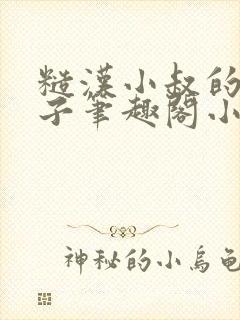 糙漢小叔的
子筆趣閣小
神秘的小烏龜